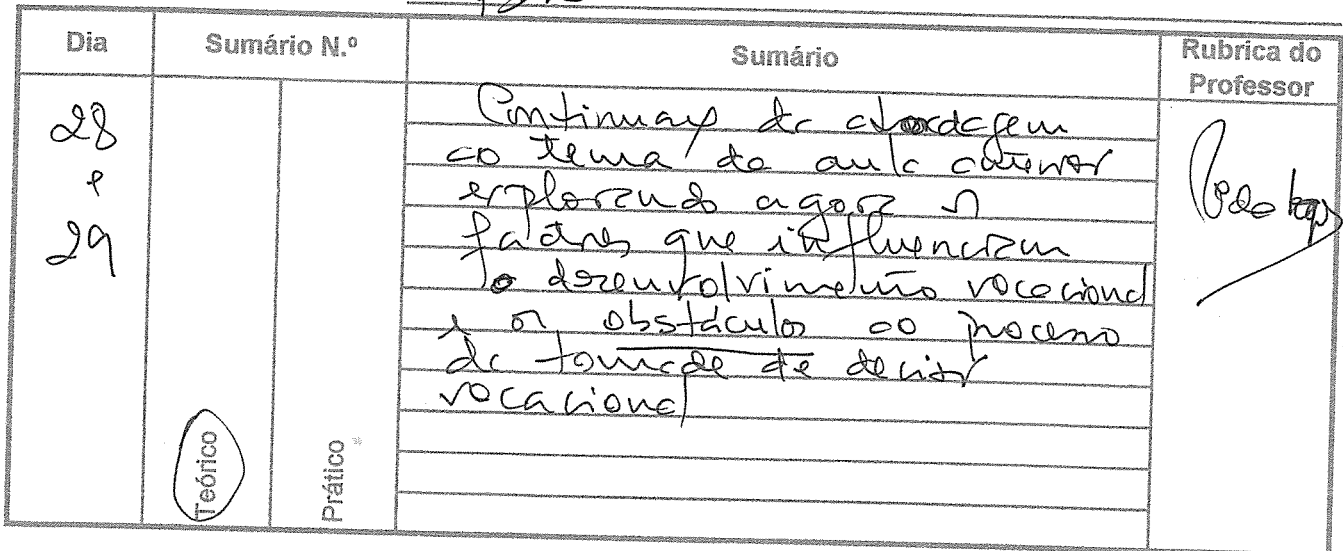 Dia
Sumário N.º
Sumário
Rubrica do
Professor
28
e
29
Teórico
Prático
Continuação da abordagem
ao tema da aula anterior
explorando agora os
fatores que influenciam
o desenvolvimento vocacional
e os obstáculos ao processo
da tomada de decisão
vocacional